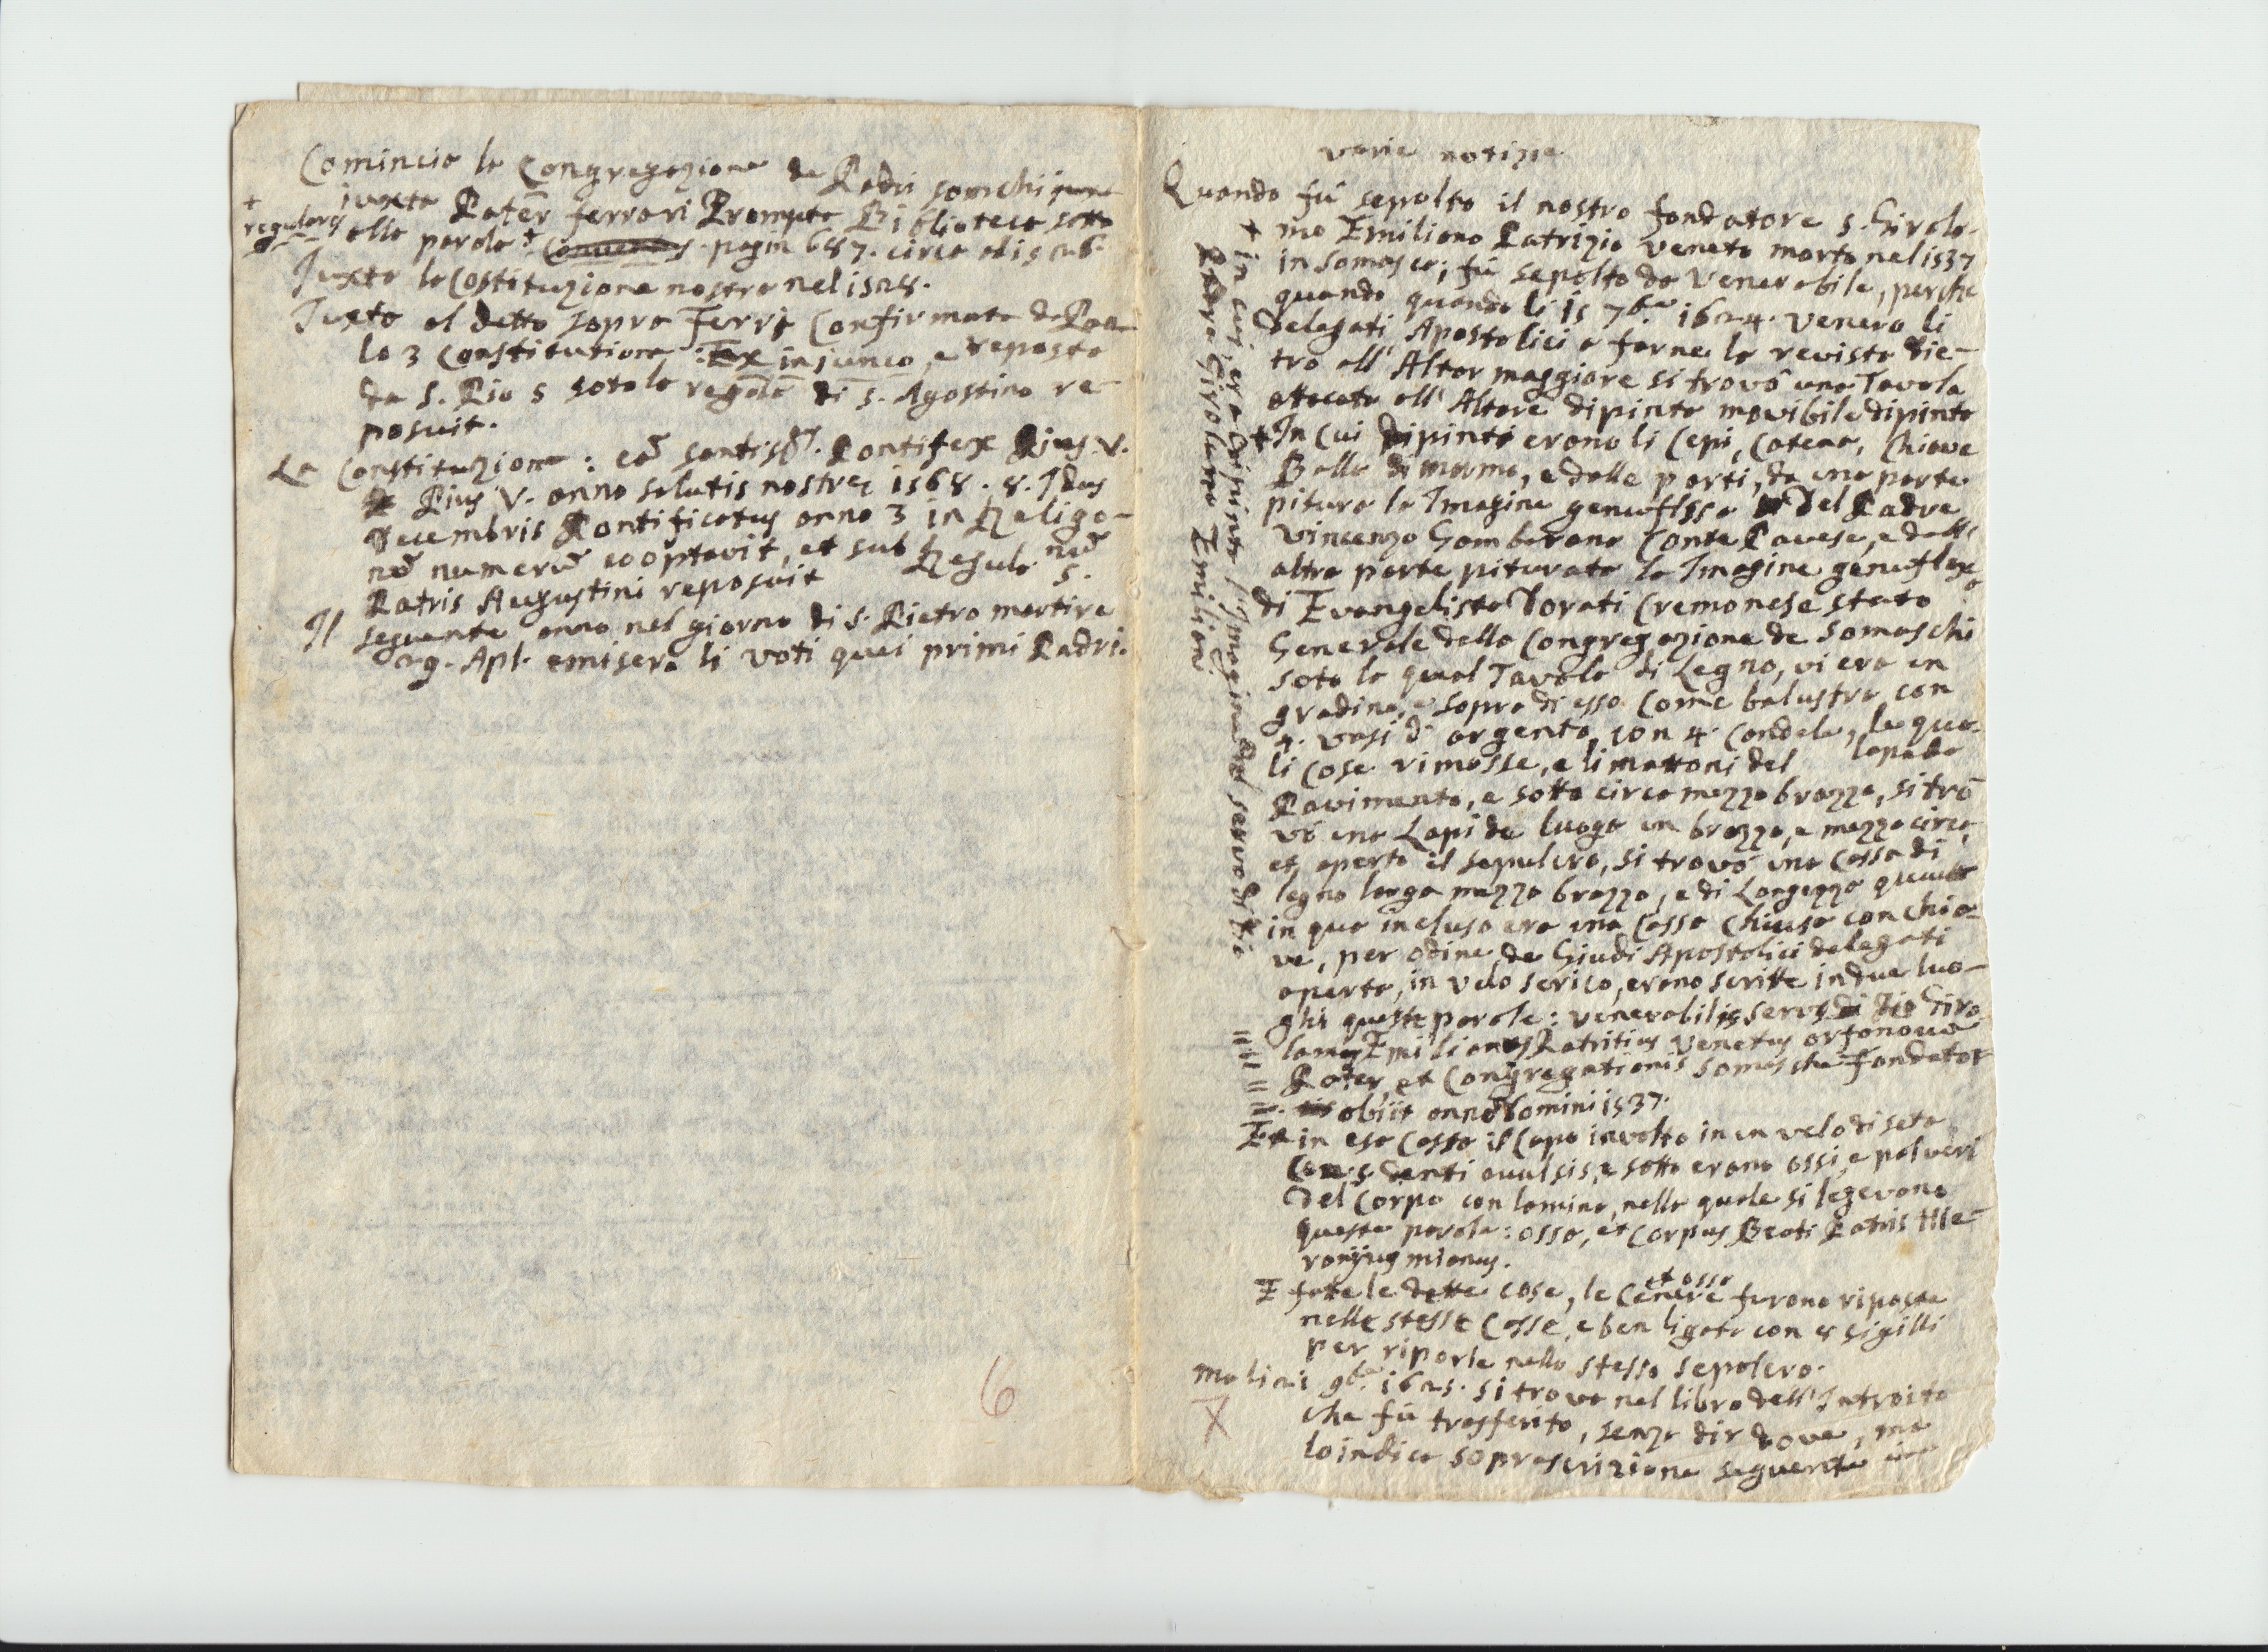 Comincio la Congregazione de Padri somchi
iuxta Patēr ferrari Prompta Biblioteca sotto
+ regulares
alla parola + Conversus pagin 687. circa
Iuxta la Costituzione nostra nel 1528.
Iuxta al detto sopra Ferrs Confirmata da
la 3 Constitutione: Ex injunco, e reposta
da S. Pio 5 sotola regola di S. Agostino re-
posuit.
La Constituzione: eod santiss. Pontifex Pius. V.
Pius V. anno salutis nostrę 1568. 8. Idus
decembris Pontificatus anno 3 in Religo-
nū numerū cooptavit, et sub Regula S.
Patris Augustini reposuit
Il seguente anno nel giorno di S. Pietro martire
29. Apl. emisero li voti quei primi Padri.
6
varie notizie
Quando fù sepolto il nostro fondatore S. Girola-
mo Emiliano Patrizio Veneto morto nel 1537
in Somasca; fù sepolto da Venerabile, perche
quando quando li 15 7bre 1624. venero li
delegati Apostolici a farne la revista die-
tro all' Altar maggiore si trovò una Tavola
attacata all' Altare dipinta movibile dipinta
+ In cui dipinti erano li Cepi, Catene, Chiave
Balla di marmo, e dalle parti, da una parte
pitura la Imagine genuflssa del Padre
Vincenzo Gambarana Conte Pavese, e dall'
altra parte piturata la Imagine genuflexa
di Evangelista Dorati Cremonese stato
Generale della Congregazione de Somaschi
soto la qual Tavola di Legno, vi era un
gradino, e sopra di esso Come balustra con
4. vasi d' argento, con 4. Candele, le qua-
li Cose rimosse, e li mattoni del lapado
Pavimento, e sotto circa mezzo brazzo, si tro-
vò una Lapide luoga un brazzo, e mezzo circa,
et aperto il sepulcro, si trovò una Cassa di
legno larga mezzo brazzo, e di Longezza
in qua inclusa era una Cassa Chiusa con chia-
ve, per odine de Giudi Apostolici delegati
aperta, in velo serico, erano scritte in due luo-
ghi queste parole: Venerabilis servus di Dio Giro
lamus Emilianus Patritius Venetus orfanoũ
Pater, et Congregationis Somaschae Fondator
obiit anno Domini 1537.
Et in esa Cassa il Capo involto in un velo di seta
Con 5 denti avulsis, e sotto erano ossi, e polveri
del Corpo con lamina, nella quale si legevano
queste parole: ossa, et Corpus Beati Patris Hie-
ronijus mianus.
E fatte le dette cose, le Cenere et ossa furono riposte
nelle stesse Casse, e ben ligate con 8 sigilli
per riporle nello stesso sepolcro.
Ma li 21 9bre 1625. si trova nel libro dell' Introito
che fù trasferito, senza dir dove, ma
lo indica soprascrizione seguente
X
+ in cui era dipinta l'Imagine del servo di Dio
Padre Girolamo Emiliani